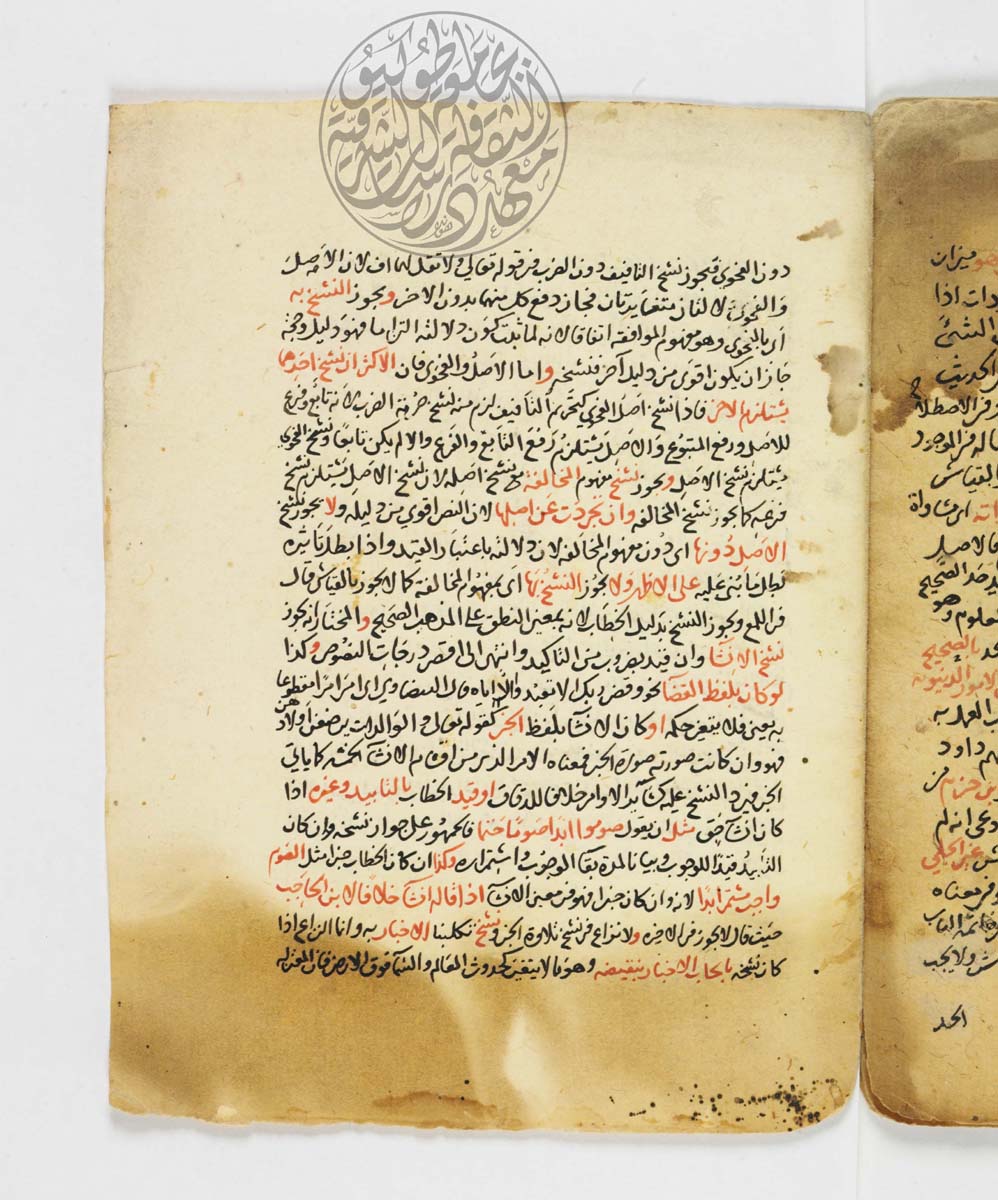 دون الفحوى فيجوز نسخ التافيف دون الضرب في قوله تعالى ولا تقل لهما اف لان الاصل
والفحوى دلالتان متغايرتان فجاز رفع كل منهما بدون الاخر ويجوز النسخ به
اى بالفحوى وهو مفهوم الموافقة اتفاقا لانه لما ثبت كون دلالته التزاما فهو دليل وحجة
جاز ان يكون اقوى من دليل آخر فينسخه واما الاصل والفحوى فان الاكثر ان نسخ احدهما
يستلزم الاخر فاذا نسخ اصل الفحوى كتحريم التافيف لزم منه نسخ حرمة الضرب لانه تابع وفرع
للاصل ورفع المتبوع والاصل يستلزم رفع التابع والفرع والا لم يكن تابعا ونسخ الفحوى
يستلزم نسخ الاصل ويجوز نسخ مفهوم المخالفة مع نسخ اصله لان نسخ الاصل يستلزم نسخ
فرعه كما يجوز نسخ المخالفه وان تجردت عن اصلها لان النص اقوى من دليله ولا يجوز نسخ
الاصل دونها اى دون مفهوم المخالفه لان دلالته باعتبار القيد واذا بطل تاثيره
بطل ما بنى عليه على الاظهر ولا يجوز النسخ بها اى بمفهوم المخالفة كما لا يجوز بالقياس قال
في اللمع ويجوز النسخ بدليل الخطاب لانه بمعنى النطق على المذهب الصحيح والمختار انه يجوز
نسخ الانشا وان قيد بضروب من التاكيد وانتهى الى اقصى درجات النصوص وكذا
لو كان بلفظ القضآ نحو وقضى ربك الا تعبدوا الا اياه قال البيضاوى اى امر امرا مقطوعا
به يعنى فلا يتغير حكمه او كان الانشا بلفظ الخبر كقوله تعالى والوالدات يرضعن اولادهن
فهو وان كانت صورته صورة الخبر فمعناه الامر الذى من اقسام الانشآ كما ياتى
الخبر فيرد النسخ عليه كسآئر الاوامر خلافا للدقاق او قيد الخطاب بالتابيد وغيره اذا
كان انشآ حتى مثل ان يقول صوموا ابدا صوما حتما فالجمهور على جواز نسخه وان كان
التابيد قيدا للوجوب وبيانا لمدة بقآ الوجوب واستمراره وكذا ان كان الخطاب خبرا مثل الصوم
واجب مستمر ابدا لانه وان كان خبرا فهو في معنى الانشآ اذا قاله انشآ خلافا لابن الحاجب
حيث قال لا يجوز في الاخيره ولا نزاع في نسخ تلاوة الخبر ونسخ تكليفنا الاخبار به وانما النزاع اذا
كان نسخه بايجاب الاخبار بنقيضه وهو مما لا يتغير كحدوث العالم والسمآ فوق الارض فان المعتزله
معهد دراسات الثقافة الشرقية
جامعة طوكيو